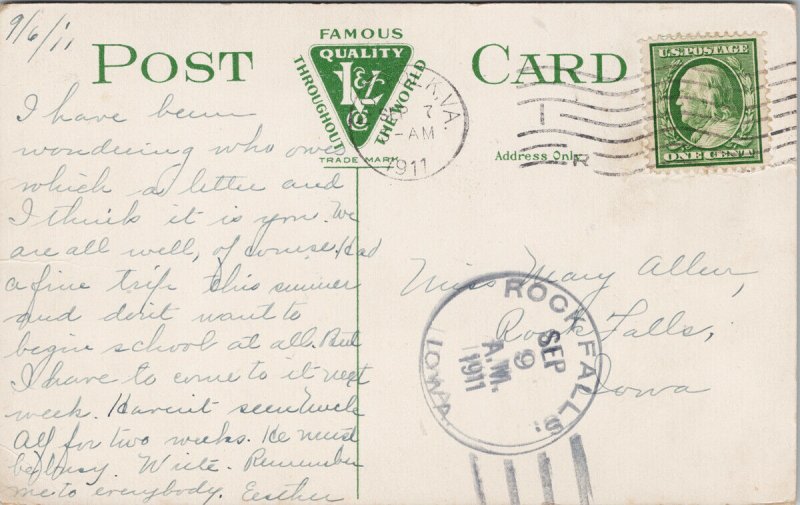 9/6/11
POST CARD
FAMOUS
QUALITY
THROUGHOUT
THE WORLD
L & Co
TRADE MARK
K, VA.
7
-AM
1911
U.S. POSTAGE
ONE CENT
Address Only
I have been
wondering who owes
which a letter and
I think it is you. We
are all well, of course. Had
a fine trip this summer
and don't want to
begin school at all. But
I have to come to it next
week. Haven't seen Uncle
Alf for two weeks. He must
be busy. Write. Remember
me to everybody. Eesther
Miss Mary Allen,
Rock Falls,
Iowa
ROCK FALLS.
SEP
9
A.M.
1911
IOWA.